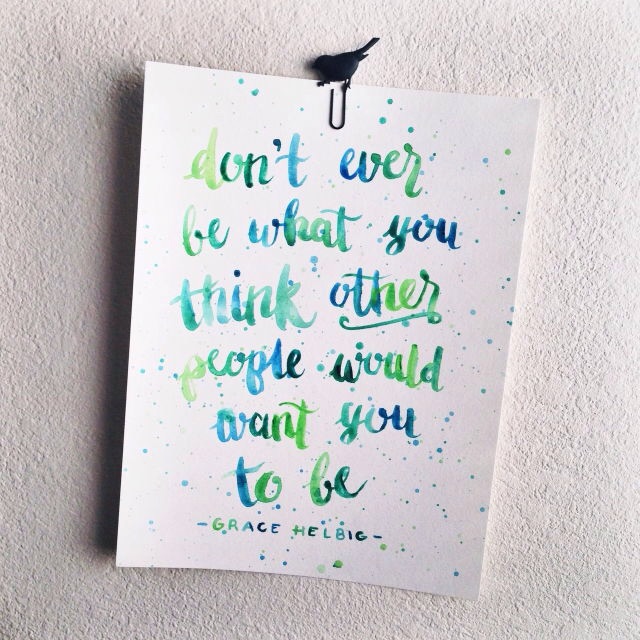 don't ever
be what you
think other
people would
want you
to be
-GRACE HELBIG-